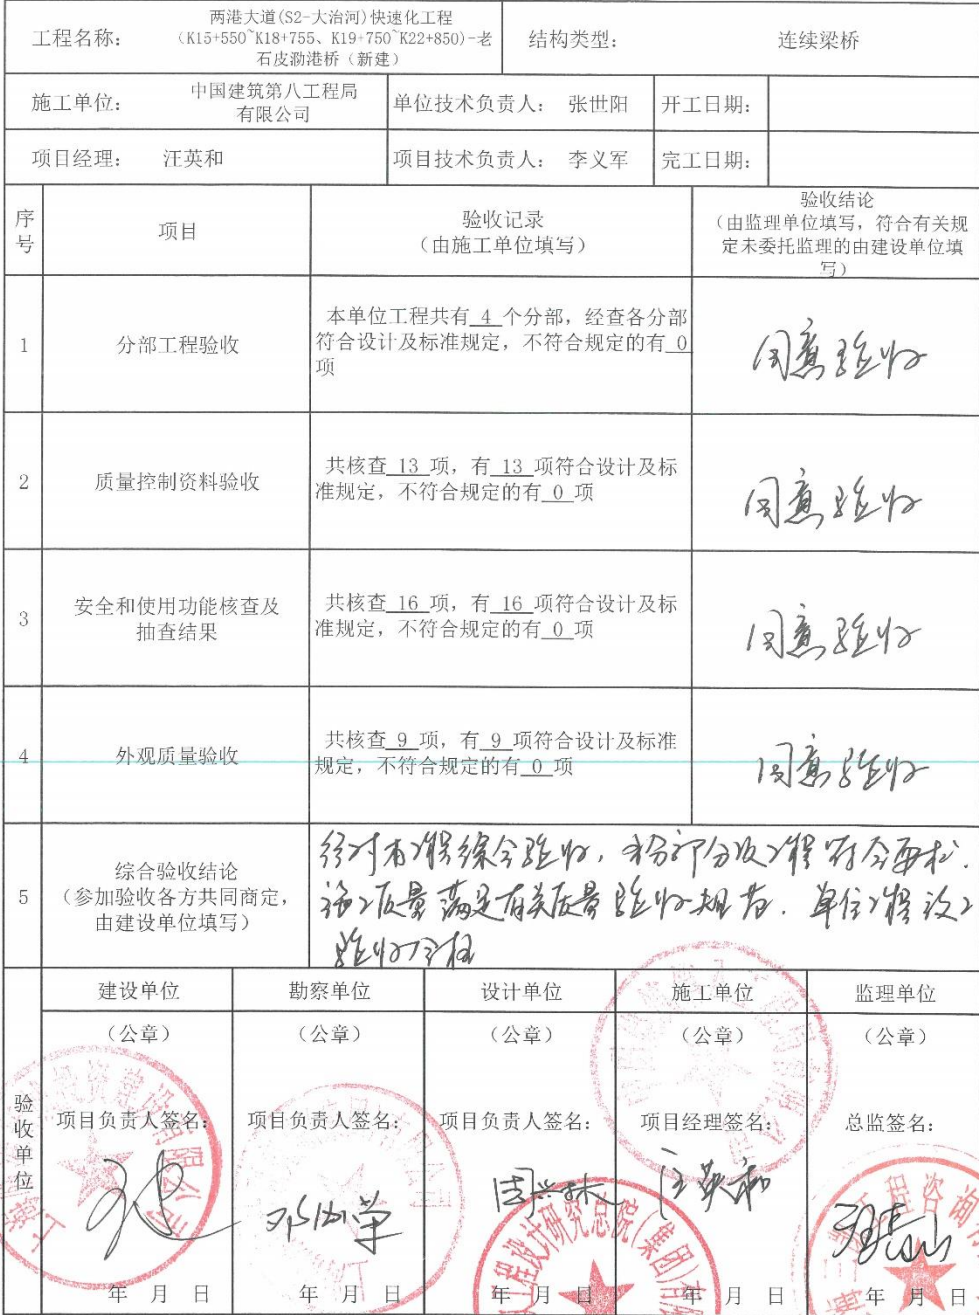 工程名称：
两港大道(S2-大治河)快速化工程
(K15+550~K18+755、K19+750~K22+850)-老
石皮泐港桥（新建）
结构类型：
连续梁桥
施工单位：
中国建筑第八工程局
有限公司
单位技术负责人：
张世阳
开工日期：
项目经理：
汪英和
项目技术负责人：
李义军
完工日期：
序
号
项目
验收记录
（由施工单位填写）
验收结论
（由监理单位填写，符合有关规
定未委托监理的由建设单位填
写）
1
分部工程验收
本单位工程共有 4 个分部，经查各分部
符合设计及标准规定，不符合规定的有 0
项
同意验收
2
质量控制资料验收
共核查 13 项，有 13 项符合设计及标
准规定，不符合规定的有 0 项
同意验收
3
安全和使用功能核查及
抽查结果
共核查 16 项，有 16 项符合设计及标
准规定，不符合规定的有 0 项
同意验收
4
外观质量验收
共核查 9 项，有 9 项符合设计及标准
规定，不符合规定的有 0 项
同意验收
5
综合验收结论
（参加验收各方共同商定，
由建设单位填写）
经对本工程综合验收，各分部分项工程符合要求.
质量满足有关质量验收规范. 单位工程
验收合格
验
收
单
位
建设单位
勘察单位
设计单位
施工单位
监理单位
（公章）
（公章）
（公章）
（公章）
（公章）
项目负责人签名：
项目负责人签名：
项目负责人签名：
项目经理签名：
总监签名：
汪英和
工程设计研究总院（集团）有
工程咨询有
年 月 日
年 月 日
年 月 日
年 月 日
年 月 日